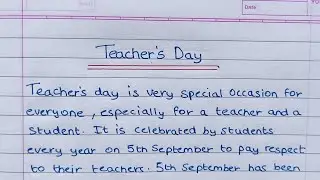 Date
YOU
Teacher's Day
Teacher's day is very special occasion for
everyone, especially for a teacher and a
student. It is celebrated by students
every year on 5th September to pay respect
to their teachers. 5th September has been